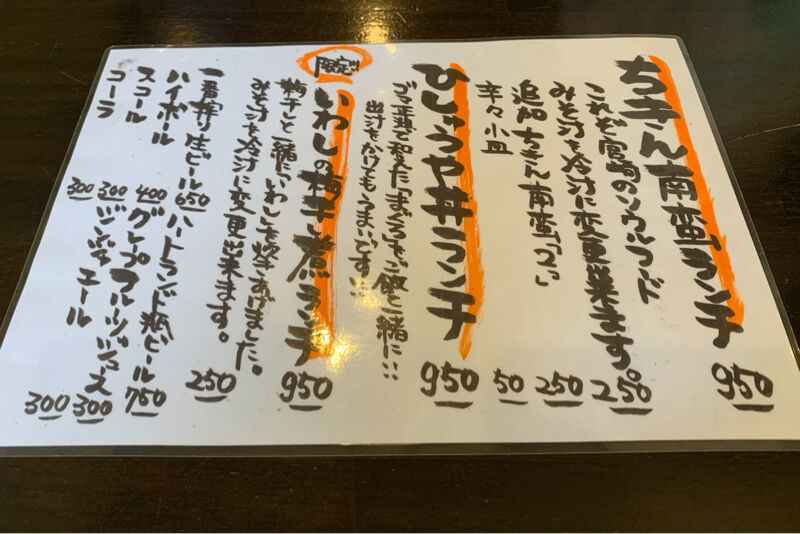 ちきん南蛮ランチ 950
これぞ宮崎のソウルフード
みそ汁を冷汁に変更出来ます。 250
追加 ちきん南蛮「2つ」 250
辛々小皿 50
ひしゅうや丼ランチ 950
ゴマ正油で和えた「まぐろ」をご飯と一緒に!!
出汁をかけてもうまいです!!
限定!!
いわしの梅干煮ランチ 950
梅干しと一緒に「いわし」を炊きあげました。
みそ汁を冷汁に変更出来ます。 250
一番搾り生ビール 650
ハートランド瓶ビール 750
ハイボール 400
グレープフルーツジュース 300
スコール 300
ジンジャエール 300
コーラ 300